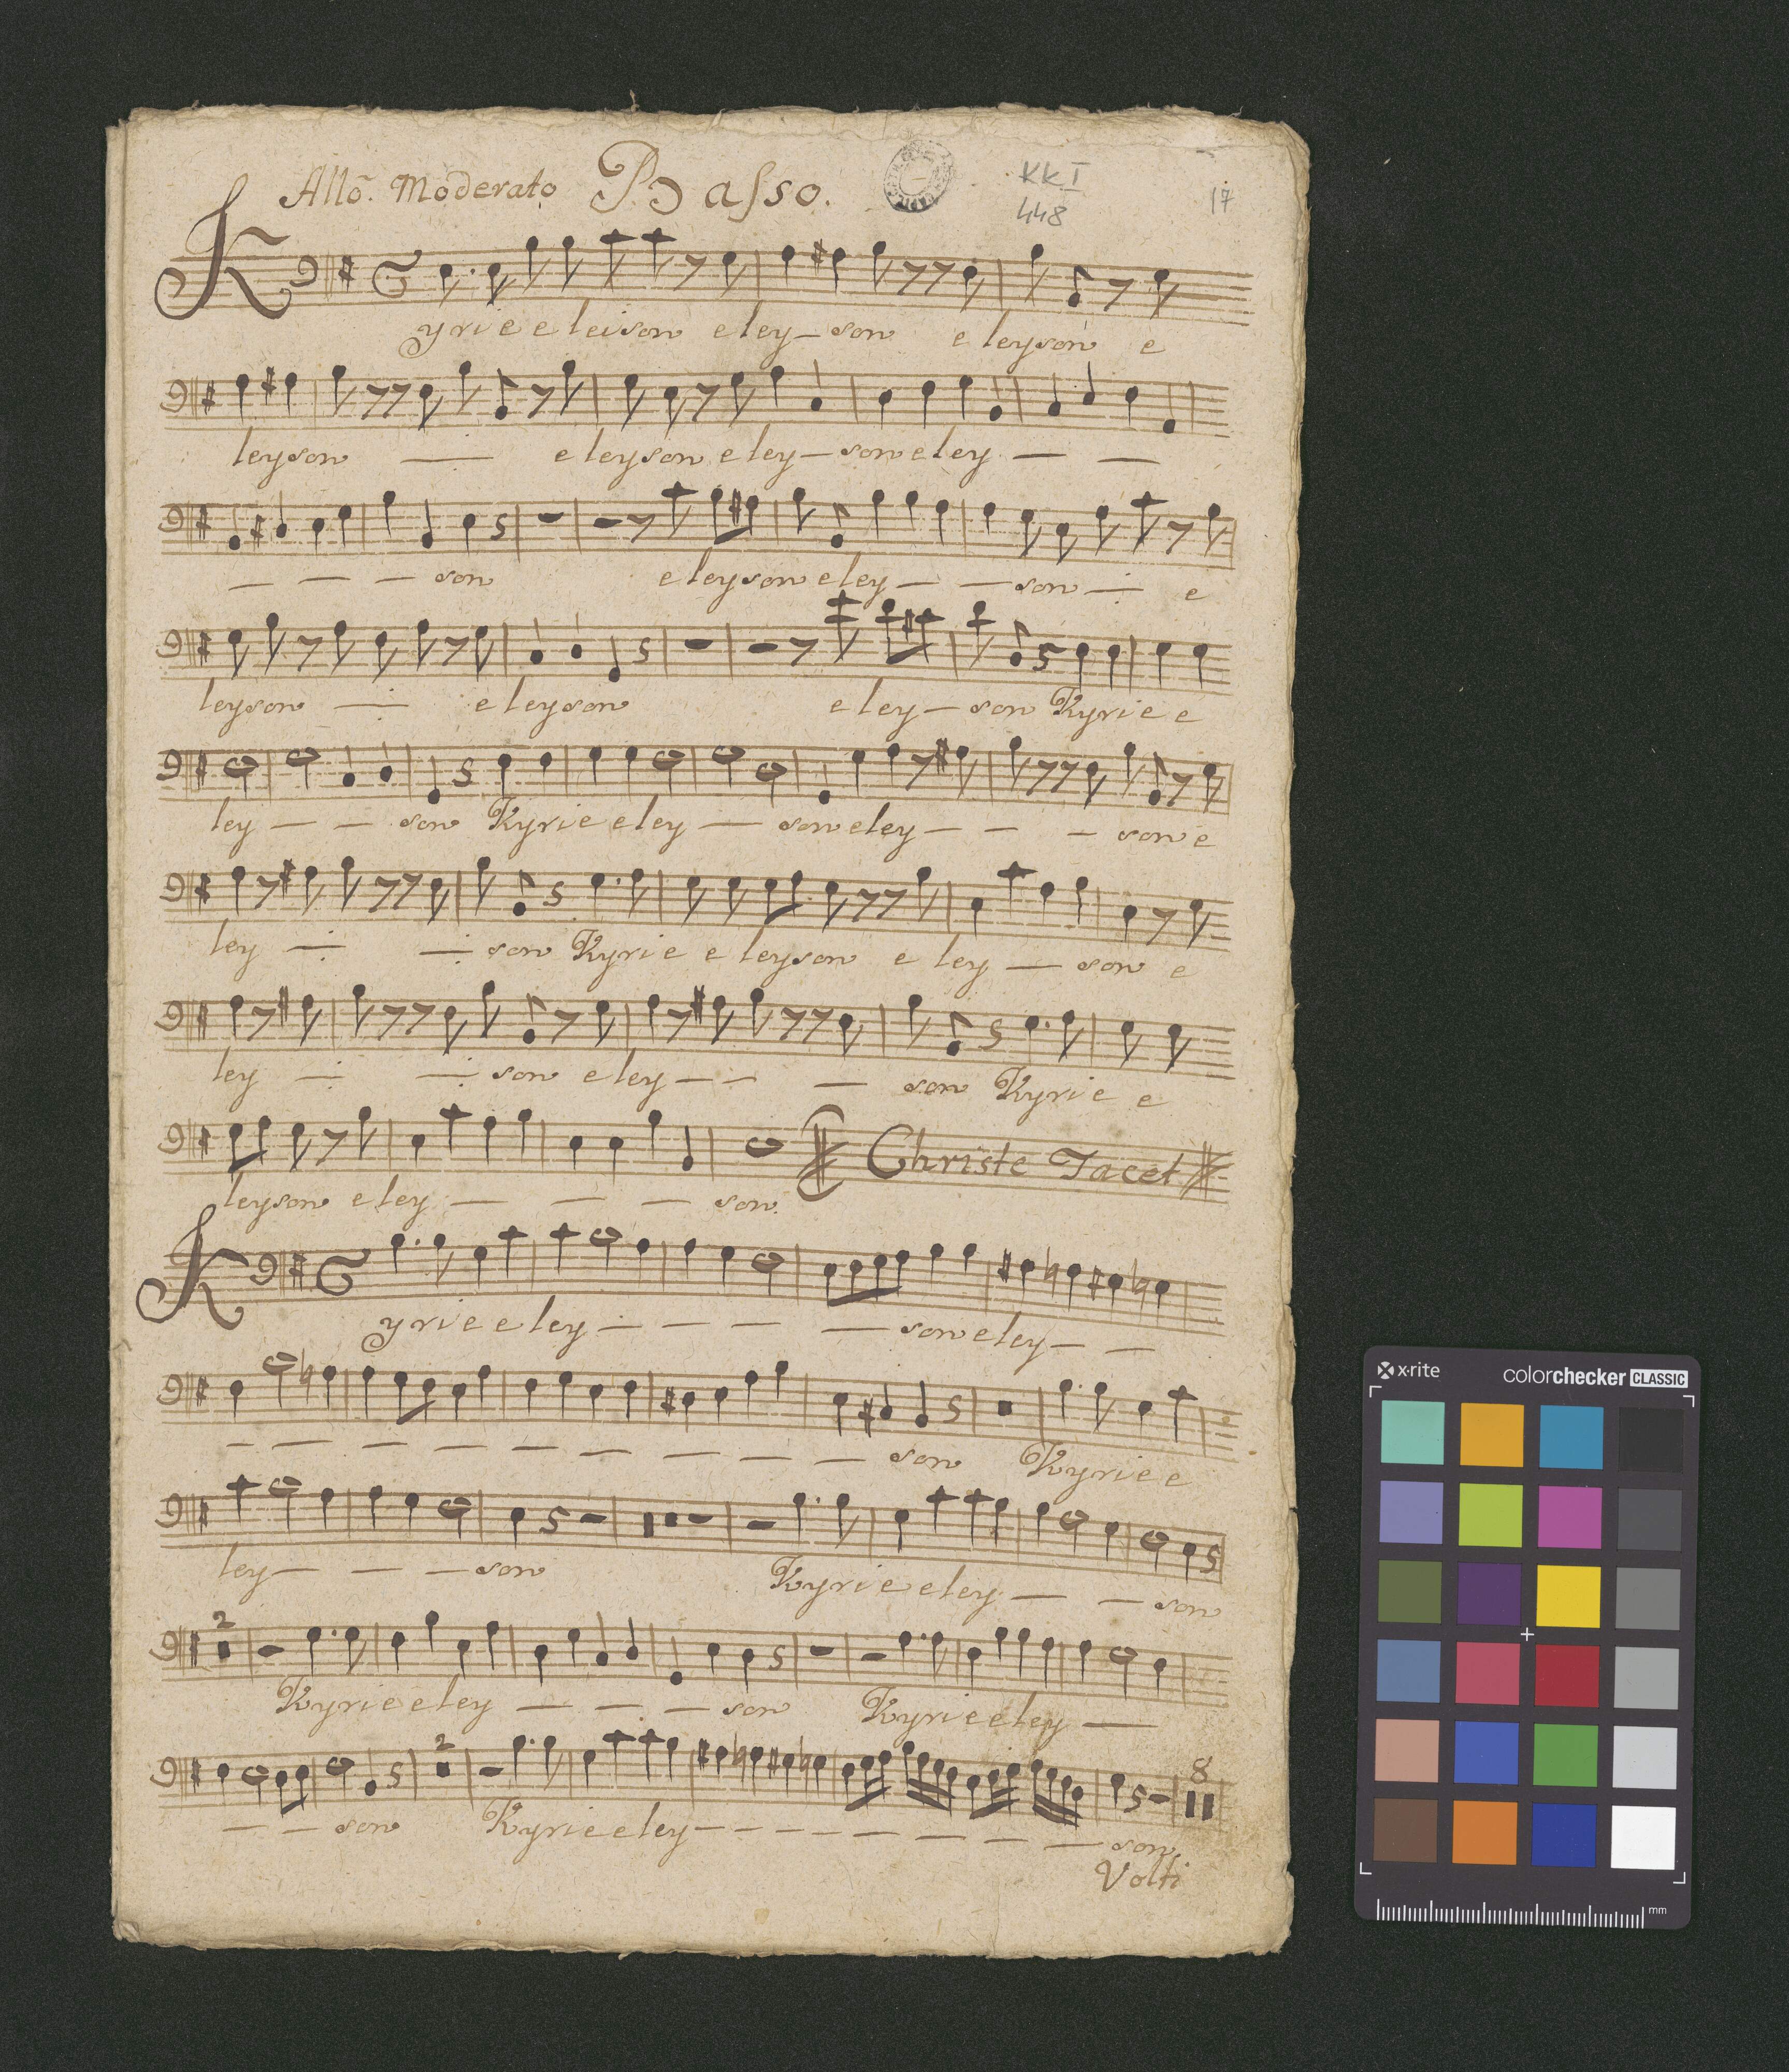 Allo. Moderato Basso. KKI
448 17
Kyrie eleison eley – son eleyson e
leyson — eleyson eley – son eley — —
— — — son eleyson eley — — son — e
leyson — eleyson eley – son Kyrie e
ley — — son Kyrie eley — son eley — — — son e
ley — — son Kyrie e leyson e ley — son e
ley — — son eley — — — son Kyrie e
Christe Tacet
leyson eley — — — son.
Kyrie eley — — — — son eley — —
— — — — — — — — — son Kyrie e
ley — — — son Kyrie eley — — son
2
Kyrie eley — — — son Kyrie eley —
2 8
— — son Kyrie eley — — — — — — — — son
Volti
x-rite colorchecker CLASSIC
mm